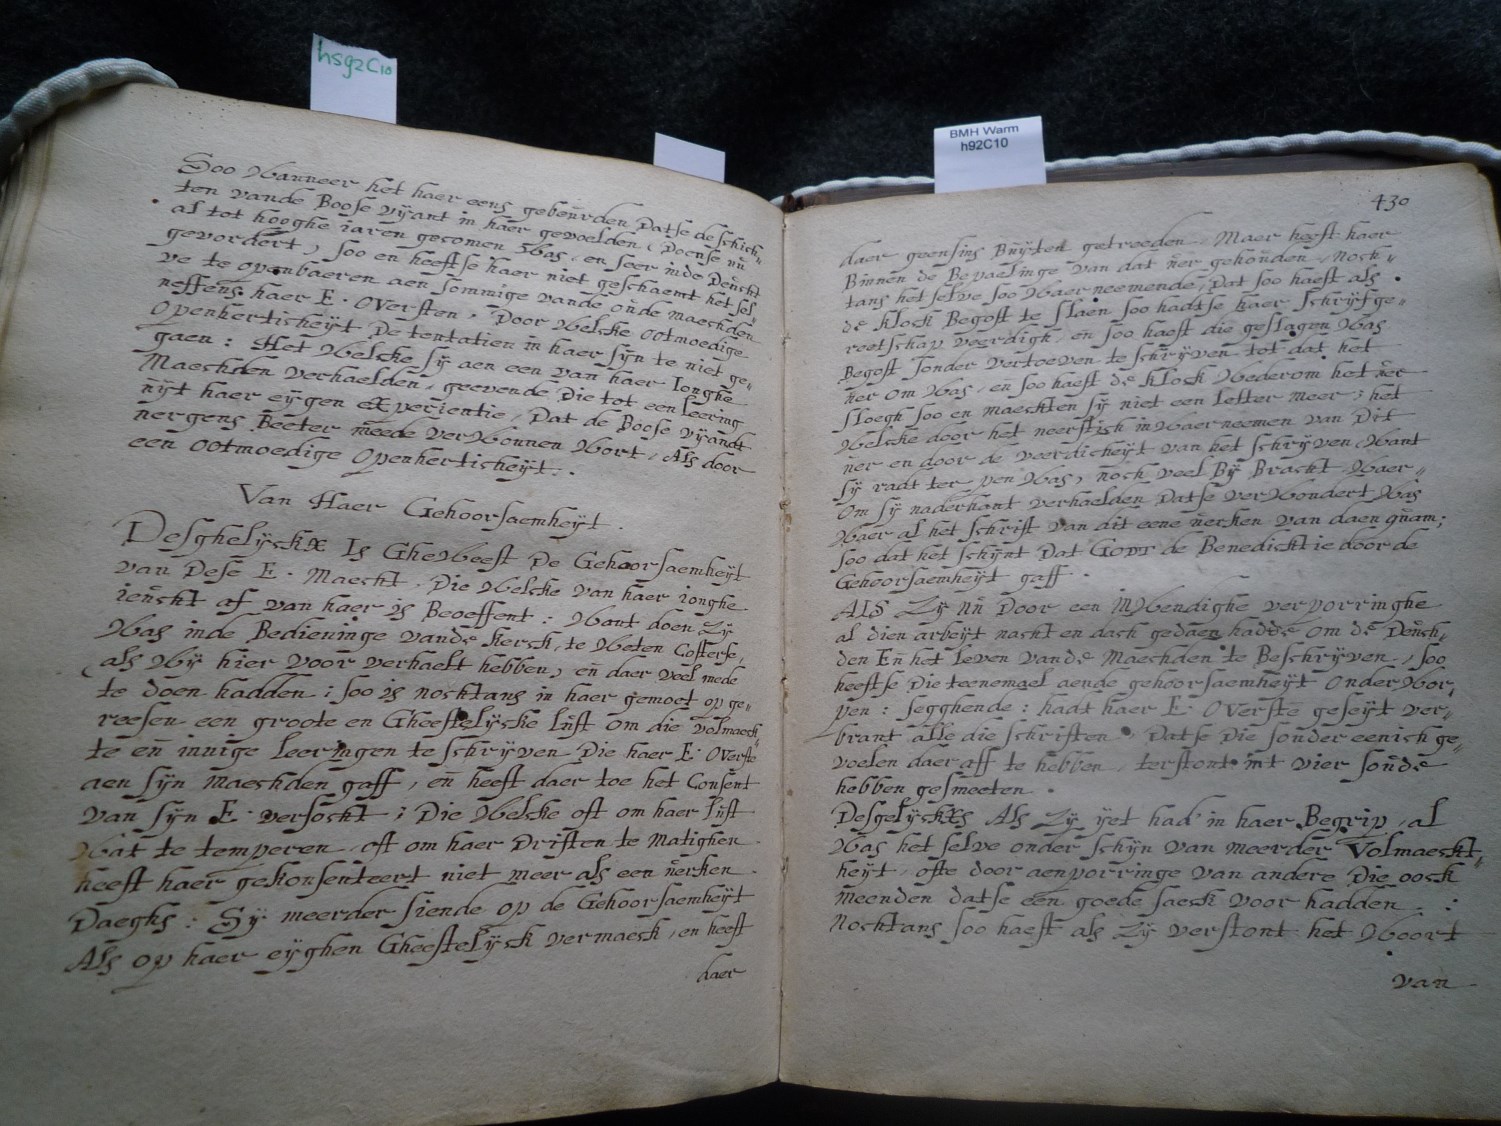 hs92C10
BMH Warm
h92C10
Soo Wanneer het haer eens gebeurden Datse de schich„
ten vande Boose vÿant in haer gevoelden (Doense nu
al tot hooghe iaren gecomen Was, en seer inde Deucht
gevordert) soo en heeftse haer niet geschaemt het sel„
ve te openbaeren aen sommige vande oude maechden
neffens haer E. OVersten, Door Welcke ootmoedige
Openherticheÿt De tentatien in haer sÿn te niet ge„
gaen: Het Welcke sÿ aen een van haer Ionghe
Maechden verhaelden, geevende Die tot een leering
uÿt haer eÿgen experientie, Dat de Boose vÿandt
nergens Beeter meede verWonnen Wort, Als door
een ootmoedige Openherticheÿt.
Van Haer Gehoorsaemheÿt.
Desghelÿckx Is GheWeest De Gehoorsaemheÿt
van Dese E. Maecht. Die Welcke van haer ionghe
ieucht af van haer is Beoeffent: Want doen Zÿ
Was inde Bedieninge vande kerck, te Weten Costerse,
(als Wÿ hier voor verhaelt hebben) en daer veel mede
te doen hadden; soo is nochtans in haer gemoet op ge„
reesen een groote en Gheestelÿcke lust om die volmaeck„
te en innige leeringen te schrÿven Die haer E. OVerste
aen sÿn maechden gaff, en heeft daer toe het Consent
van sÿn E. versocht; Die Welcke oft om haer lust
Wat te temperen, oft om haer Driften te Matighen
heeft haer gekonsenteert niet meer als een uerken
Daeghs: Sÿ meerder siende op de Gehoorsaemheÿt
Als op haer eÿghen Gheestelÿck vermaeck, en heeft
daer
430
daer geensins Buÿten getreeden, Maer heeft haer
Binnen de Bepaelinge van dat uer gehouden, noch„
tans het selve soo Waer neemende, Dat soo haest als
de klock Begost te slaen soo hadtse haer schrÿfge„
reetschap veerdigh, en soo haest die geslagen Was
Begost sonder vertoeven te schrÿven tot dat het
uer om Was, en soo haest de klock Wederom het uer
sloegh soo en maeckten sÿ niet een letter meer: het
Welcke door het neerstich inWaerneemen van Dit
uer en door de veerdicheÿt van het schrÿven, Want
sÿ radt ter pen Was, noch veel Bÿ Bracht, Waer„
om sÿ naderhant verhaelden Datse verWondert Was
Waer al het schrift van dit eene uerken van daen quam;
soo dat het schÿnt Dat Godt de Benedicktie door de
Gehoorsaemheÿt gaff.
Als Zÿ nu Door een inWendighe vervorringhe
al dien arbeÿt nacht en dach gedaen hadde om de Deuch„
den En het leven vande Maechden te Beschrÿven, soo
heeftse Die teenemael aende gehoorsaemheÿt onderWor„
pen: segghende: hadt haer E. OVerste geseÿt ver„
brant alle die schriften, Datse Die sonder eenich ge„
voelen daer aff te hebben, terstont int vier soude
hebben gesmeeten.
Desgelÿckxs Als Zÿ ÿet had' in haer Begrip, al
Was het selve onder schÿn van meerder Volmaeckt„
heÿt, ofte door aenporringe van andere Die oock
meenden datse een goede saeck voor hadden:
Nochtans soo haest als Zÿ verstont het Woort
van